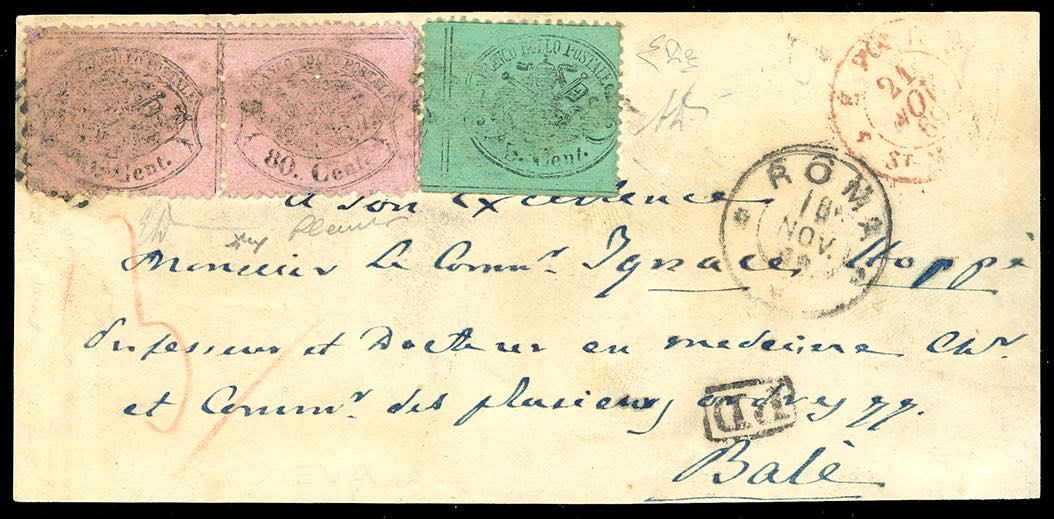 FRANCO BOLLO POSTALE
80. Cent.
FRANCO BOLLO POSTALE
80. Cent.
FRANCO BOLLO POSTALE
5. Cent.
21
NOV
ROMA
18
NOV.
A Son Excellence
Monsieur Le Commr. Ignace Hoppe
Professeur et Docteur en medecine Chr.
et Commr. des plusieurs ordres
PD
Balè